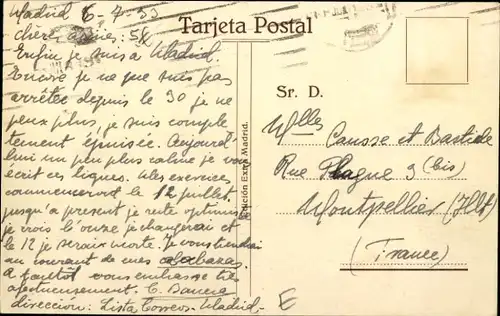 Madrid 6-7-33
Tarjeta Postal
chère
Enfin je suis a Madrid.
Encore je ne que suis pas
arrêter depuis le 30 je ne
peux plus, je suis comple
tement épuisée. Aujourd'
hui un peu plus calme je vous
écrit ces lignes. Mes exercices
commenceront le 12 juillet.
jusqu'a present je reste optimiste
je crois l'onze je changerau et
le 12 je serais morte. Je vous tiendrai
au courant de mes calabazas.
A vous embrasse très
afectueusement. C.
dirección: Lista Correos-Madrid-
Expº Madrid.
Sr. D.
Mlles Causse et Bastide
Rue Plague 9 (bis)
Montpellier (Hlt)
(France)
E